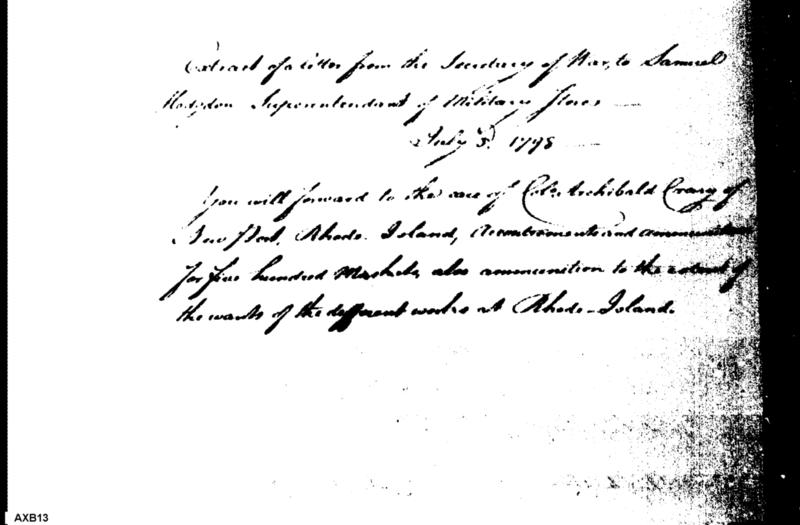 Extract of a letter from the Secretary of War, to Samuel
Hodgdon Superentendant of Military Stores
July 3. 1798
You will forward to the care of Colo. Archibald Crary of
New Port, Rhode-Island, Accoutrements and ammunition
for five hundred Muskets, also ammunition to the extent of
the wants of the different works at Rhode-Island.
AXB13